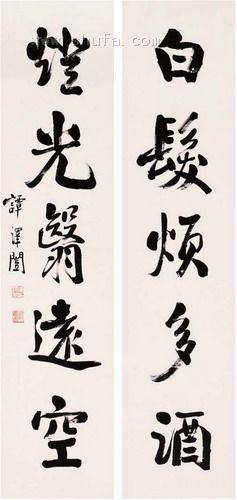 白髮煩多酒
燈光翳遠空
譚澤闓